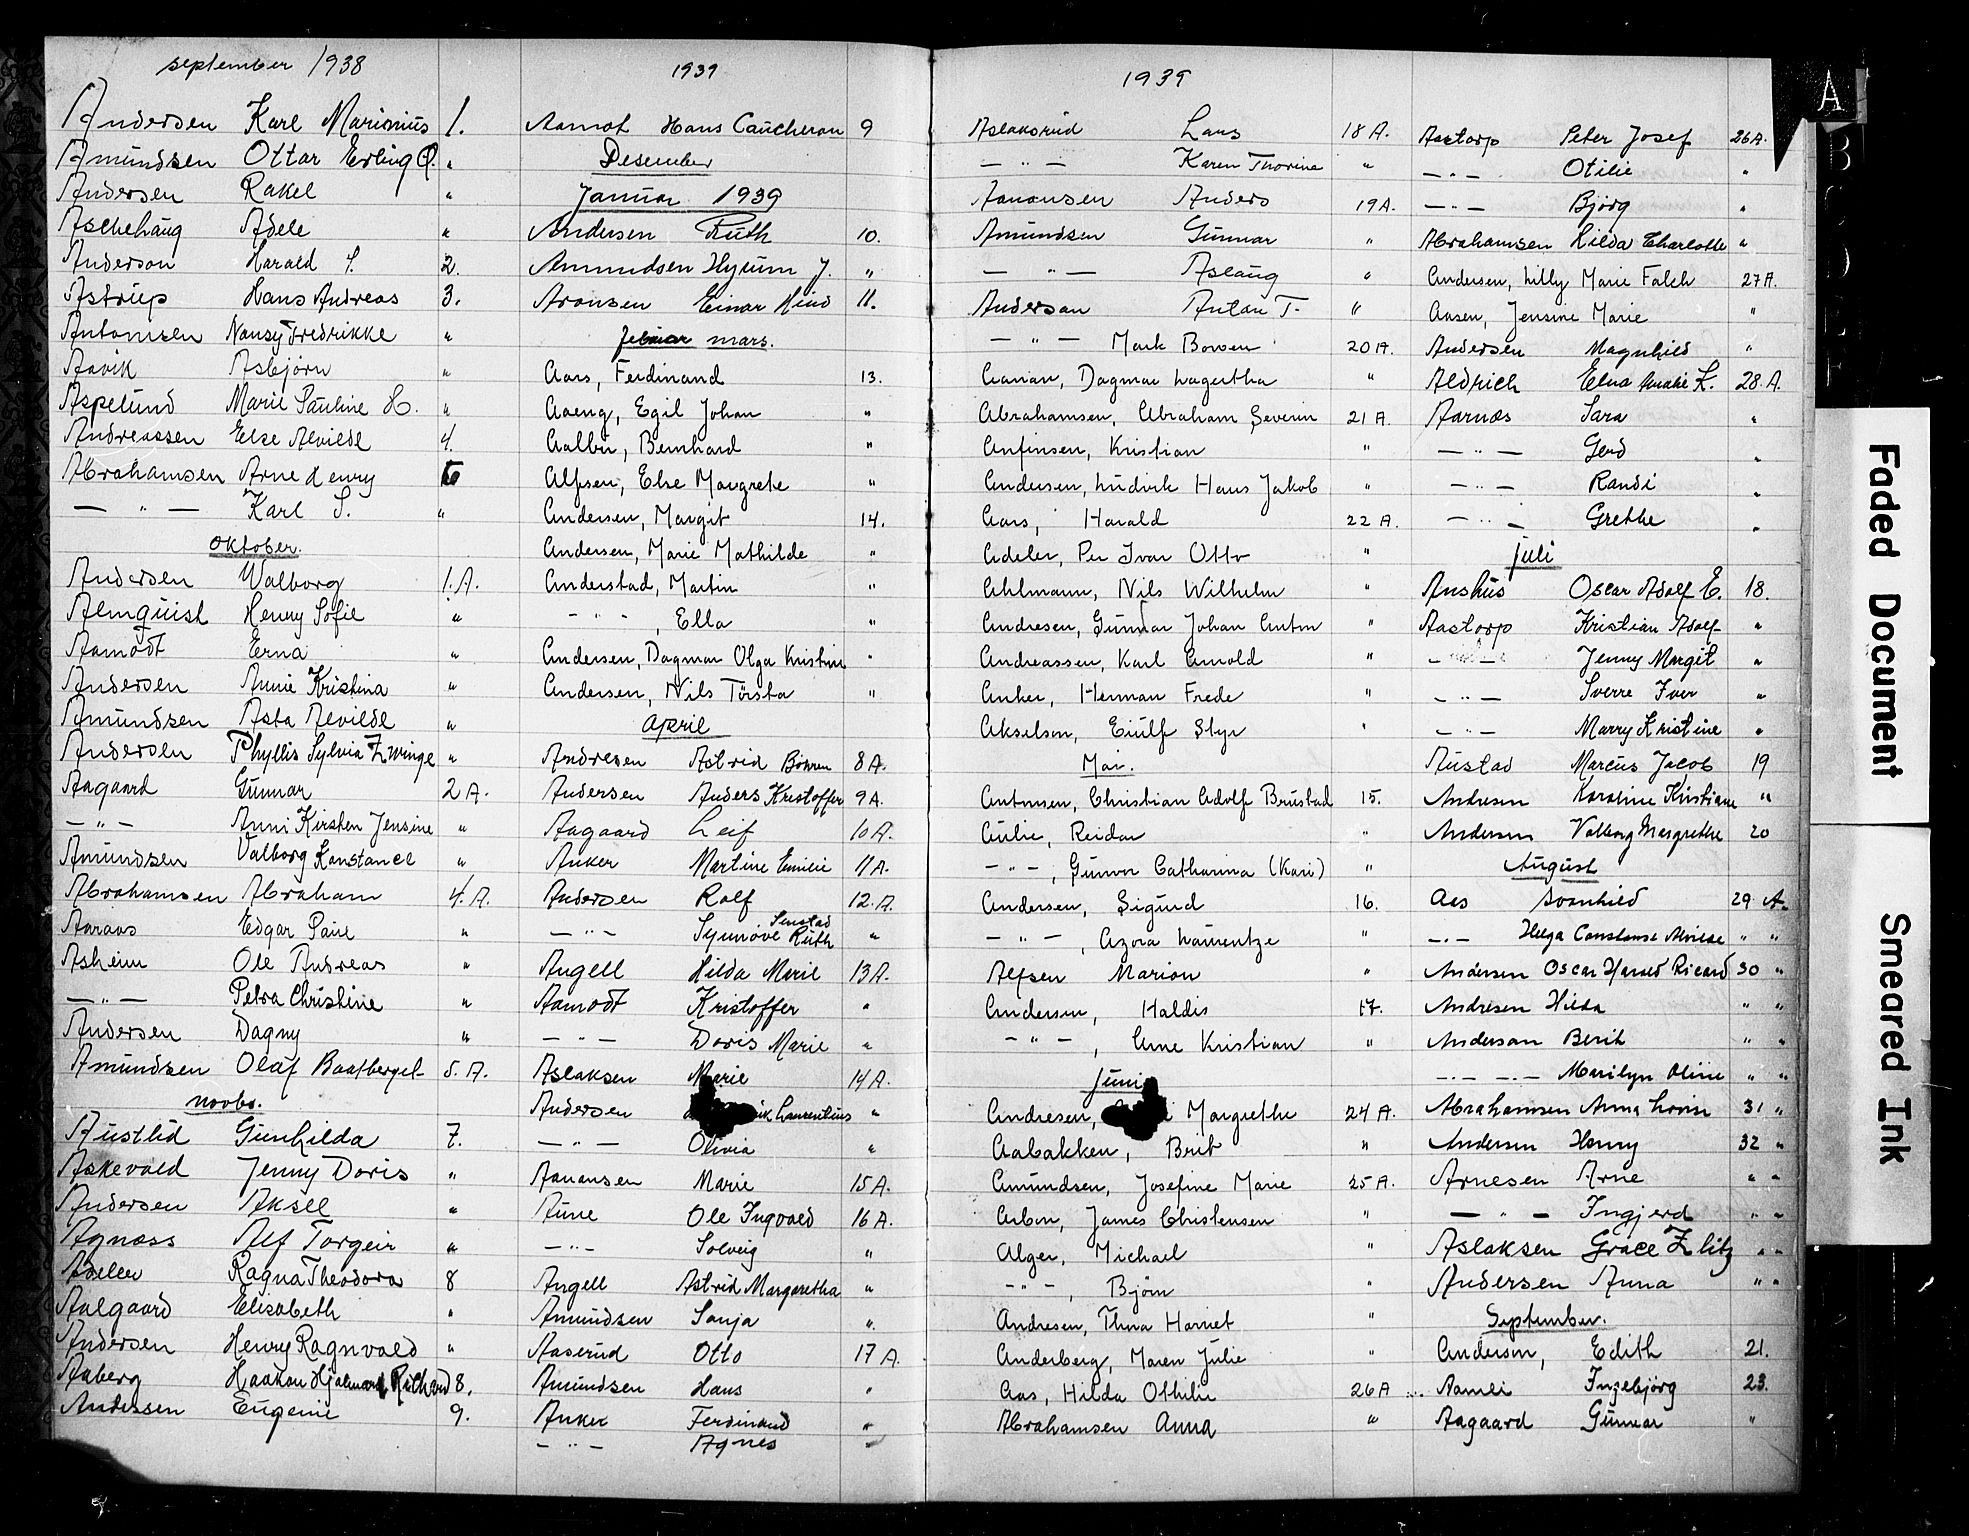 september 1938
Andersen Karl Marinius 1.
Amundsen Ottar Erling O. "
Andersen Rakel "
Aschehaug Adele "
Anderson Harald L. 2.
Astrup Hans Andreas 3.
Antonsen Nansy Fredrikke "
Aavik Asbjørn "
Aspelund Marie Pauline H. "
Andreassen Else Alvilde 4.
Abrahamsen Arne Henry 6
— " — Karl S. "
Oktober.
Andersen Walborg 1.A.
Almquist Henny Sofie "
Aamodt Erna "
Andersen Annie Kristina "
Amundsen Asta Alvilde "
Andersen Phyllis Sylvia Zwinge "
Aagaard Gunnar 2 A.
— " — Anni Kirsten Jensine "
Amundsen Valborg Konstance "
Abrahamsen Abraham 4. A.
Aaraas Edgar Paul "
Asheim Ole Andreas "
— " — Petra Christine "
Andersen Dagny "
Amundsen Olaf Baatbergel 5. A.
novbr.
Austlid Gunhilda 7.
Askevold Jenny Doris "
Andersen Aksel "
Agnæss Alf Torgeir "
Adeler Ragna Theodora 8
Aalgaard Elisabeth "
Andersen Henry Ragnvald "
Aaberg Haakon Hjalmar Richard 8.
Andersen Eugenie 9.
1939
Aamot Hans Caucheron 9
Desember
Januar 1939
Andersen Ruth 10.
Amundsen Hyeum J. "
Aronsen Einar Hind 11.
februar mars.
Aars, Ferdinand 13.
Aaeng, Egil Johan "
Aalbu, Bernhard "
Alfsen, Else Margrete "
Andersen, Margit 14.
Andersen, Marie Mathilde "
Anderstad, Martin "
— " — , Ella "
Andersen, Dagmar Olga Kristine "
Andersen, Nils Torsta "
April
Andresen Astrid Bowen 8 A.
Andersen Anders Kristoffer 9 A.
Aagaard Leif 10 A.
Anker Martine Emilie 11 A.
Andersen Rolf 12. A.
— " — Synnøve Senstad Ruth "
Angell Hilda Marie 13 A.
Aamodt Kristoffer "
— " — Doris Marie "
Aslaksen Marie 14 A.
Andersen Laurentius "
— " — Olivia "
Aanansen Marie 15 A.
Aune Ole Ingvald 16 A.
— " — Solveig "
Angell Astrid Margaretha "
Amundsen Sonja "
Aaserud Otto 17 A.
Amundsen Hans "
Anker Ferdinand "
— " — Agnes "
1939
Aslaksrud Lars 18 A.
— " — Karen Thorine "
Aanonsen Anders 19 A.
Amundsen Gunnar "
— " — Aslaug "
Anderson Anton T. "
— " — Mark Bowen 20 A.
Aanan, Dagmar Lagertha "
Abrahamsen, Abraham Severin 21 A.
Anfinsen, Kristian "
Andersen, Ludvik Hans Jakob "
Aars, Harald 22 A.
Adeler, Per Ivar Otto "
Ahlmann, Nils Wilhelm "
Andresen, Gunnar Johan Anton "
Andreassen, Karl Arnold "
Anker, Herman Frede "
Akselson, Eiulf Styr "
Mai.
Antonsen, Christian Adolf Brustad 15.
Aulie, Reidar "
— " — , Gunvor Catharina (Kari) "
Andersen, Sigurd 16.
— " — , Azora Laurentze "
Alfsen Marion "
Andersen, Haldis 17.
— " — , Arne Kristian "
Juni
Andresen, Margrethe 24 A.
Aabakken, Brit "
Amundsen, Josefine Marie 25 A.
Arbon, James Christensen "
Alger, Michael "
— " — , Bjørn "
Andresen, Thora Harriet "
Anderberg, Maren Julie "
Aas, Hilda Othilie 26 A
Abrahamsen Anna "
Aastorp Peter Josef 26 A.
— " — Otilie "
— " — Bjørg "
Abrahamsen Hilda Charlotte "
Andersen, Lilly Marie Falch 27 A.
Aasen, Jensine Marie "
Andersen Magnhild "
Aldrich Elna Amalie K. 28. A.
Aarnæs Sara "
— " — Gerd "
— " — Randi "
— " — Grethe "
juli
Anshus Oscar Adolf E. 18.
Aastorp Kristian Adolf "
— " — Jenny Margit "
— " — Sverre Iver "
— " — Marry Kristine "
Austad Marcus Jacob 19
Andresen Karoline Kristiane "
Andersen Valborg Margrethe 20
August
Aas Svanhild 29 A.
— " — Helga Constanse Alvilde " "
Andersen Oscar Harald Ricard 30 "
Andresen Hilda " "
Anderson Berit " "
— " — Marilyn Oline " "
Abrahamsen Anna Lovise 31 "
Andersen Henny 32 "
Arnesen Arne " "
— " — Ingjerd " "
Aslaksen Grace Zlitz " "
Andersen Anna " "
September.
Anderson, Edith 21.
Aamli Ingebjørg 23.
Aagaard Gunnar "
A
B
C
D
E
F
Faded Document
Smeared Ink